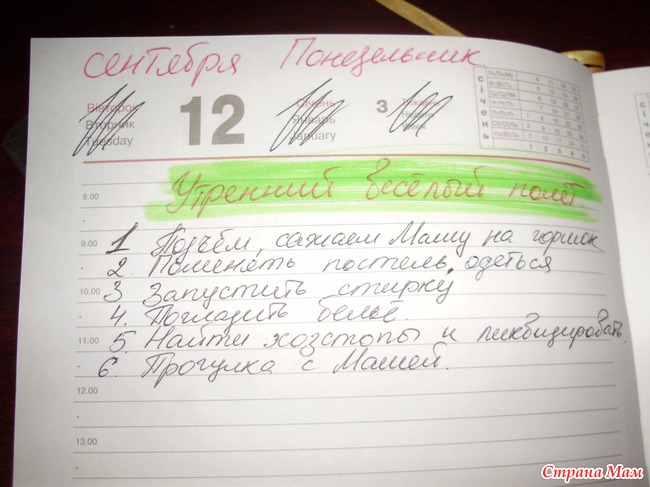 сентября Понедельник
Вівторок
Вторник
Tuesday
12
Січень
Январь
January
3
січень
8.00
Утренний весёлый полёт.
9.00
1 Подъём, сажаем Машу на горшок
2. Поменять постель, одеться
10.00
3 Запустить стирку
4. Погладить бельё.
11.00
5. Найти хозстопы и ликвидировать.
6. Прогулка с Машей.
12.00
13.00
Страна Мам